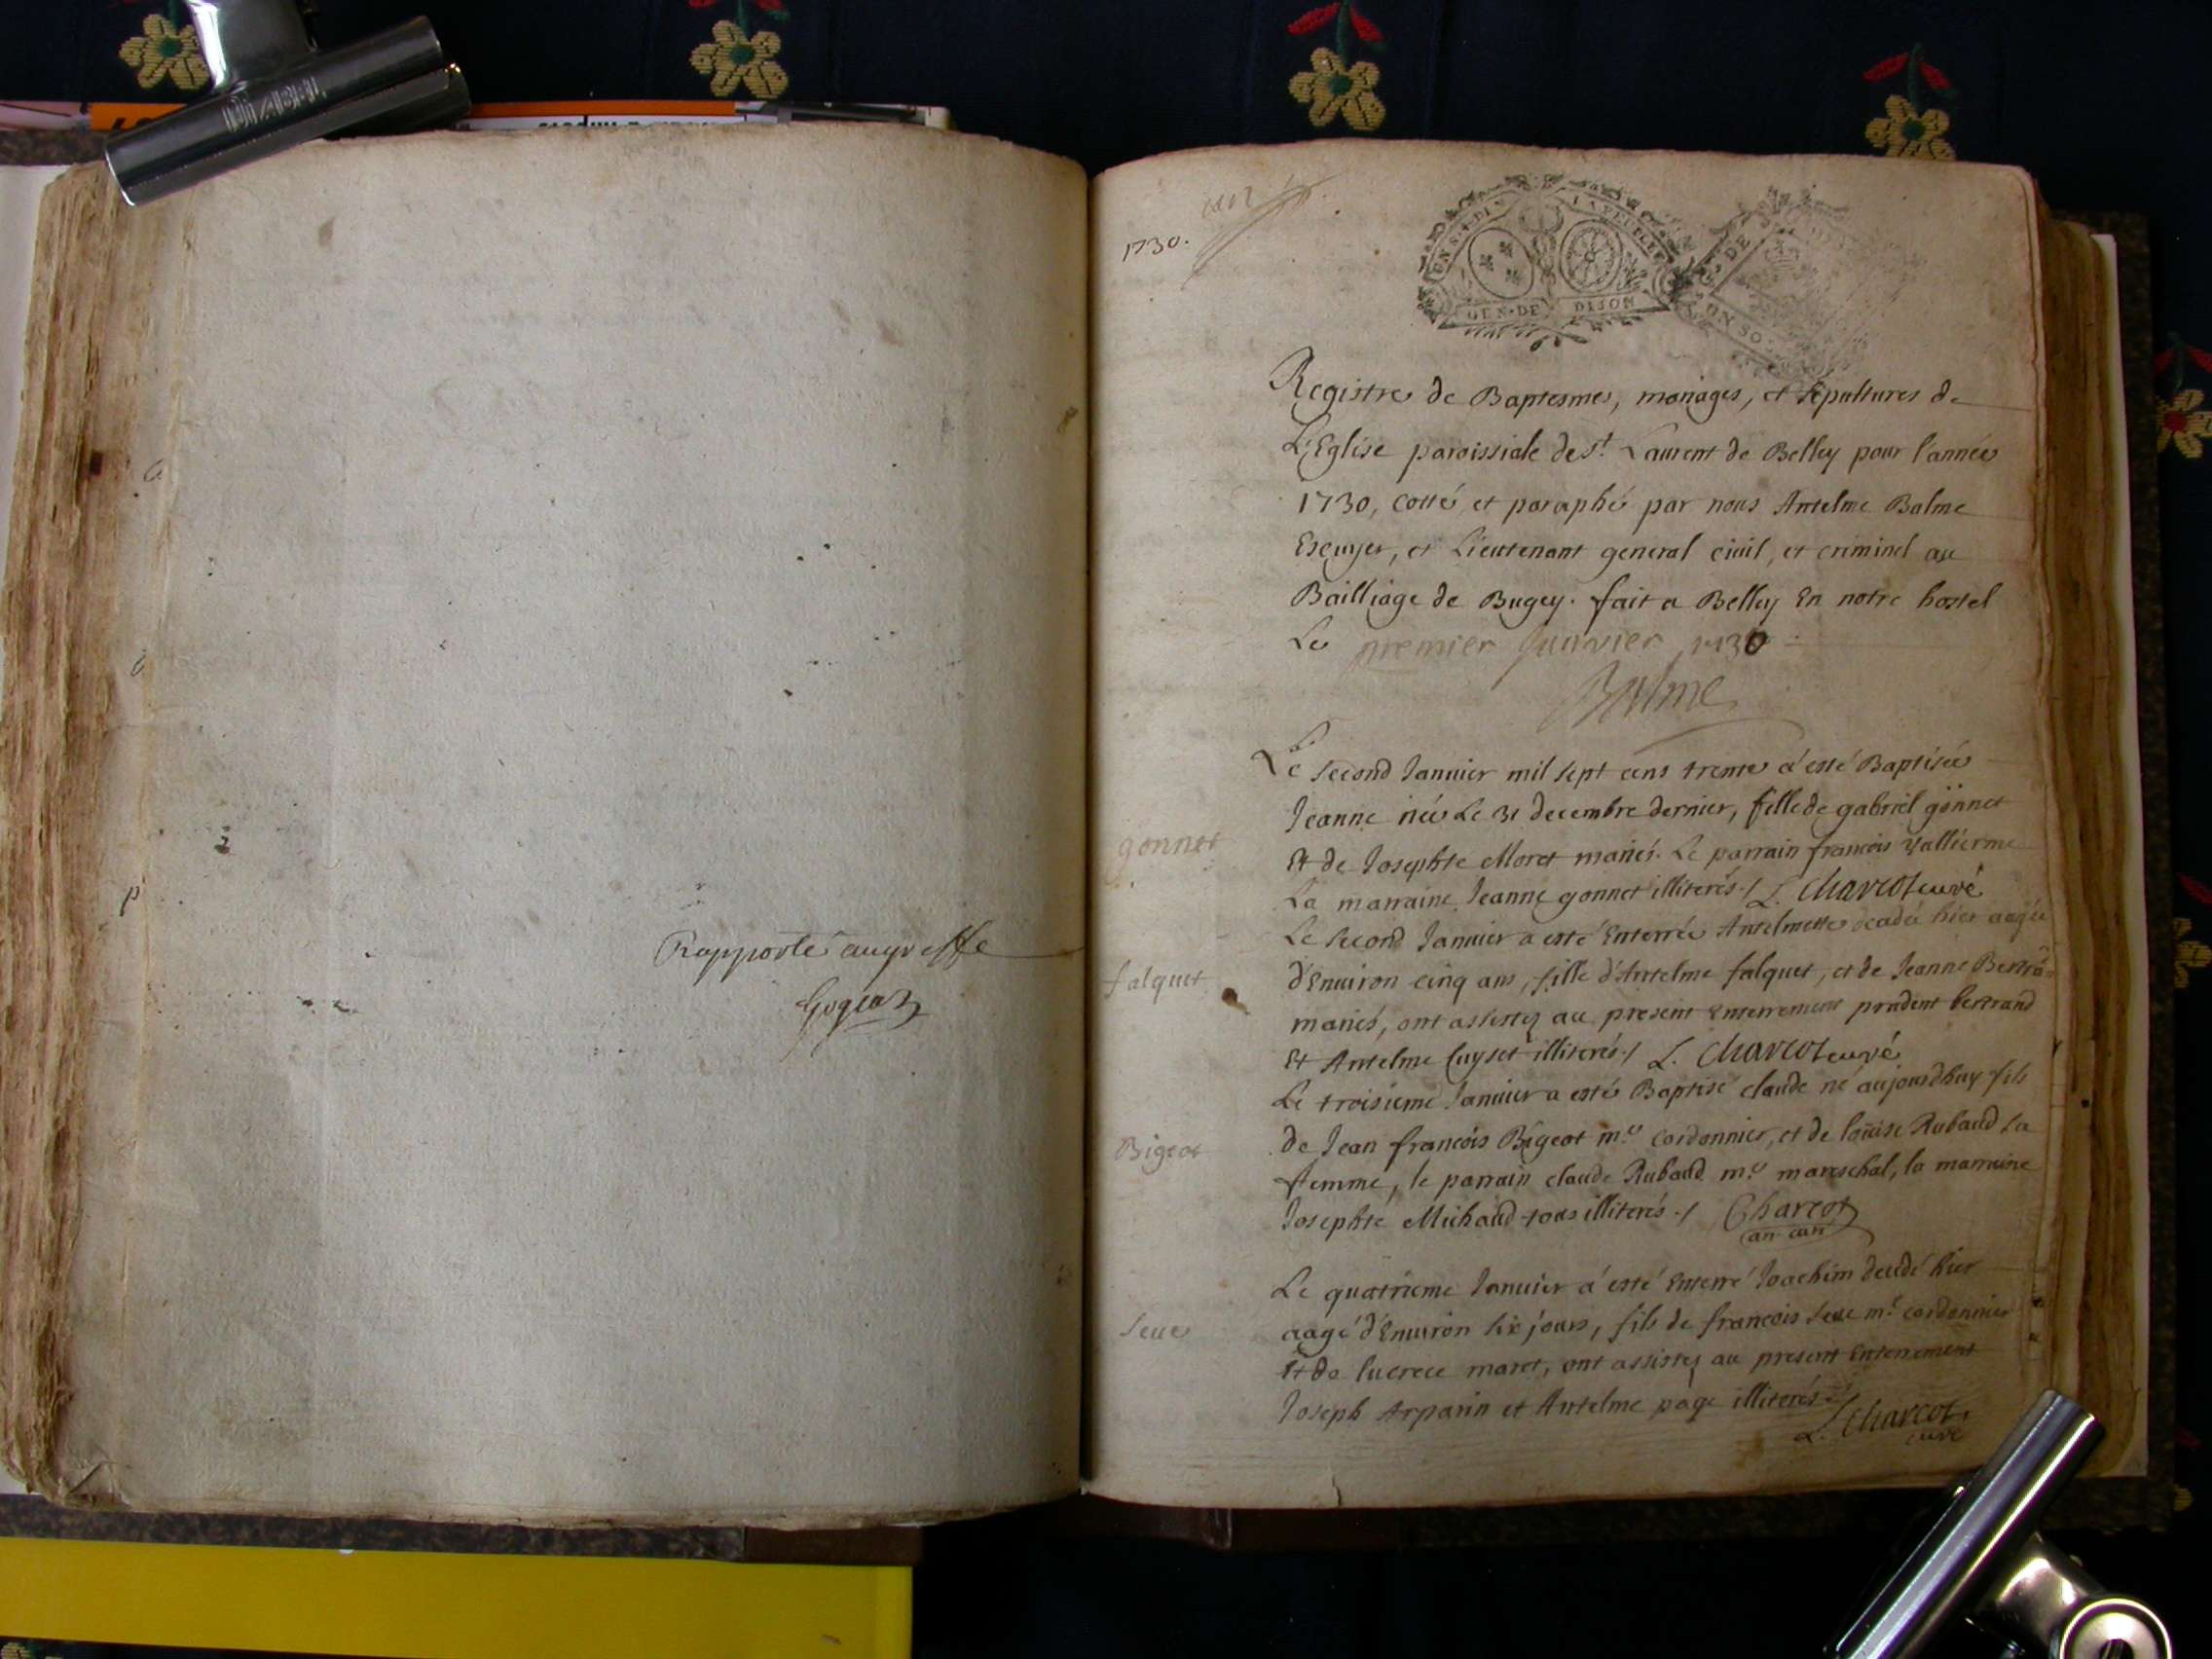 Rapporté au greffe
1730.
GEN. DE DIJON
Registre de Baptesmes, mariages, et sepultures de
L'Eglise paroissiale de St. Laurent de Belley pour l'année
1730, cotté et paraphé par nous Antelme Balme
Escuyer, et Lieutenant general ciuil, et criminel au
Bailliage de Bugey. fait a Belley En notre hostel
Le premier Januier 1730
Balme
Le second Januier mil sept cens trente a esté Baptisée
Jeanne née Le 31 decembre dernier, fille de gabriel gonnet
gonnet
Et de Josephte Moret mariés. Le parrain francois vallierme
La marraine Jeanne gonnet illiterés ./ L. Charcot curé
Le second Januier a esté Enterrée Antelmette decedée hier aagée
falquet
d'Enuiron cinq ans, fille d'Antelme falquet, et de Jeanne Bertrã
mariés, ont assistez au present Enterrement prudent bertrand
Et Antelme Cuyset illiterés ./ L. Charcot curé
Le troisieme Januier a esté Baptisé claude né aujourdhuy fils
Bigeot
de Jean francois Bigeot me. cordonnier, et de louise Rubaud sa
femme, le parrain claude Rubaud me. mareschal, la marraine
Josephte Michaud tous illiterés ./ Charcot
Le quatrieme Januier a esté Enterré Joachim decedé hier
Seue
aagé d'Enuiron six jours, fils de francois Seue me. cordonnier
Et de lucrece maret, ont assistez au present Enterrement
Joseph Arparin et Antelme page illiterés
L. Charcot
curé